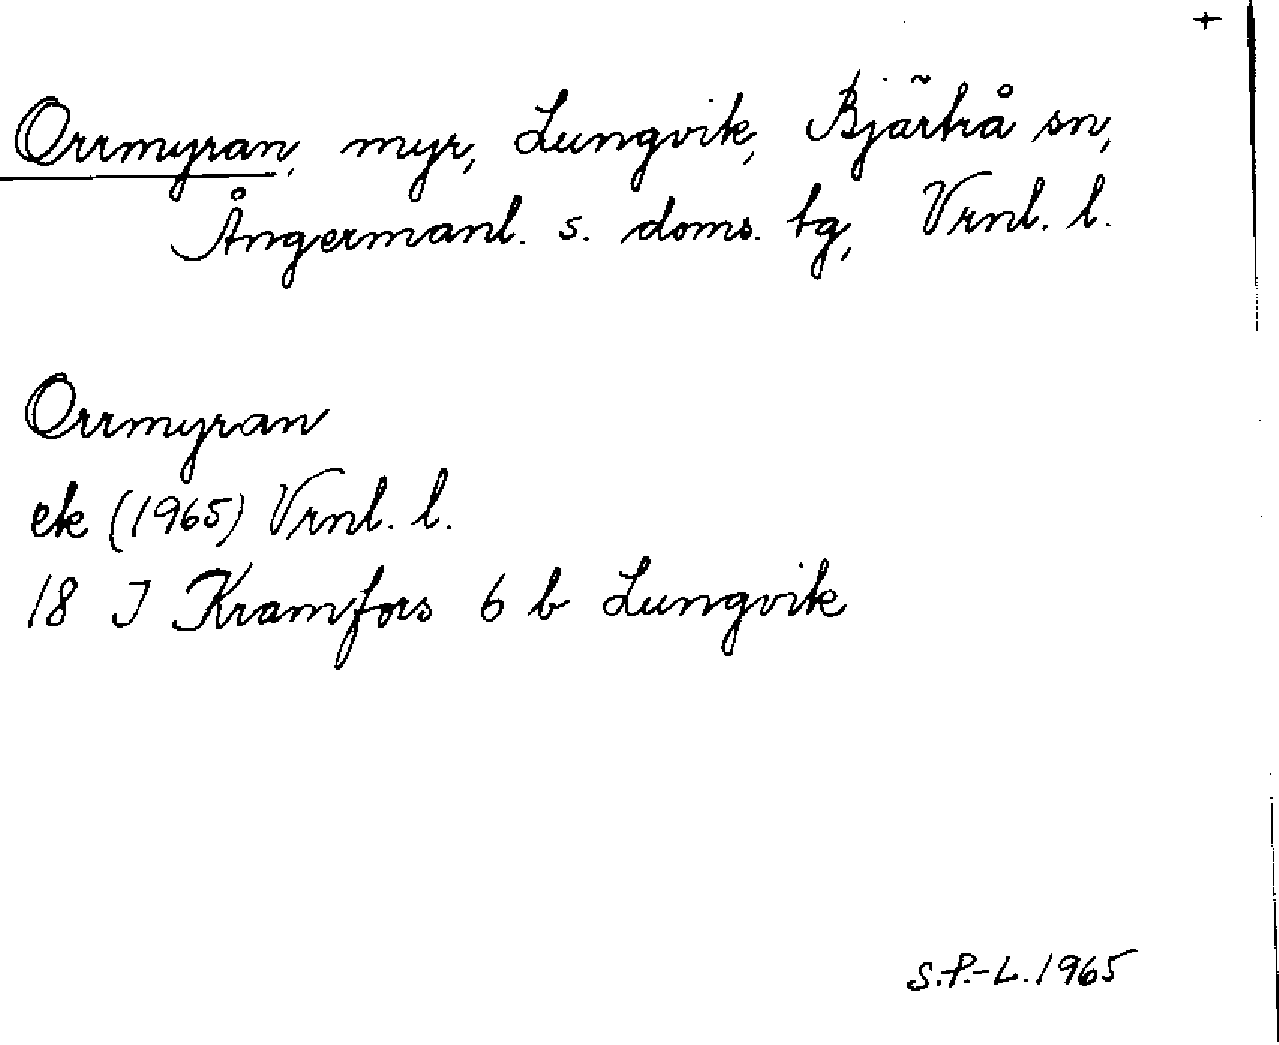 +
Orrmyran, myr, Lungvik, Bjärtrå sn,
Ångermanl. s. doms. tg, Vrnl. l.
Orrmyran
ek (1965) Vrnl. l.
18 J Kramfors 6 b Lungvik
S.P.-L. 1965